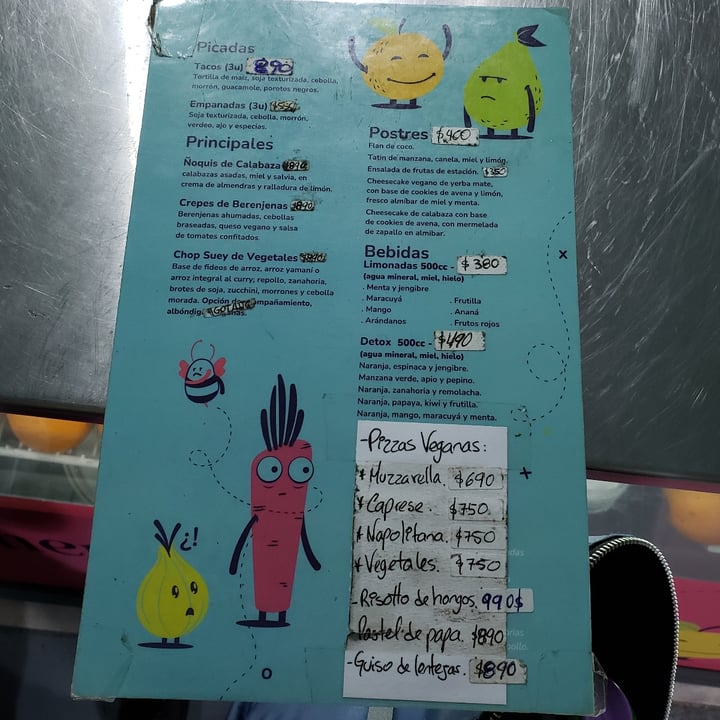 Picadas
Tacos (3u) 890
Tortilla de maíz, soja texturizada, cebolla,
morrón, guacamole, porotos negros.
Empanadas (3u)
Soja texturizada, cebolla, morrón,
verdeo, ajo y especias.
Principales
Ñoquis de Calabaza $890
calabazas asadas, miel y salvia, en
crema de almendras y ralladura de limón.
Crepes de Berenjenas $890
Berenjenas ahumadas, cebollas
braseadas, queso vegano y salsa
de tomates confitados.
Chop Suey de Vegetales $890
Base de fideos de arroz, arroz yamaní o
arroz integral al curry; repollo, zanahoria,
brotes de soja, zucchini, morrones y cebolla
morada. Opción
albóndig AGOTADO
¿!
Postres $400
Flan de coco.
Tatin de manzana, canela, miel y limón.
Ensalada de frutas de estación. $350
Cheesecake vegano de yerba mate,
con base de cookies de avena y limón,
fresco almíbar de miel y menta.
Cheesecake de calabaza con base
de cookies de avena, con mermelada
de zapallo en almíbar.
Bebidas
Limonadas 500cc - $380
(agua mineral, miel, hielo)
. Menta y jengibre
. Maracuyá . Frutilla
. Mango . Ananá
. Arándanos . Frutos rojos
Detox 500cc - $490
(agua mineral, miel, hielo)
Naranja, espinaca y jengibre.
Manzana verde, apio y pepino.
Naranja, zanahoria y remolacha.
Naranja, papaya, kiwi y frutilla.
Naranja, mango, maracuyá y menta.
-Pizzas Veganas:
* Muzzarella. $690
* Caprese. $750
* Napolitana. $750
* Vegetales. $750
- Risotto de hongos. 990$
- Pastel de papa. $890
- Guiso de lentejas. $890